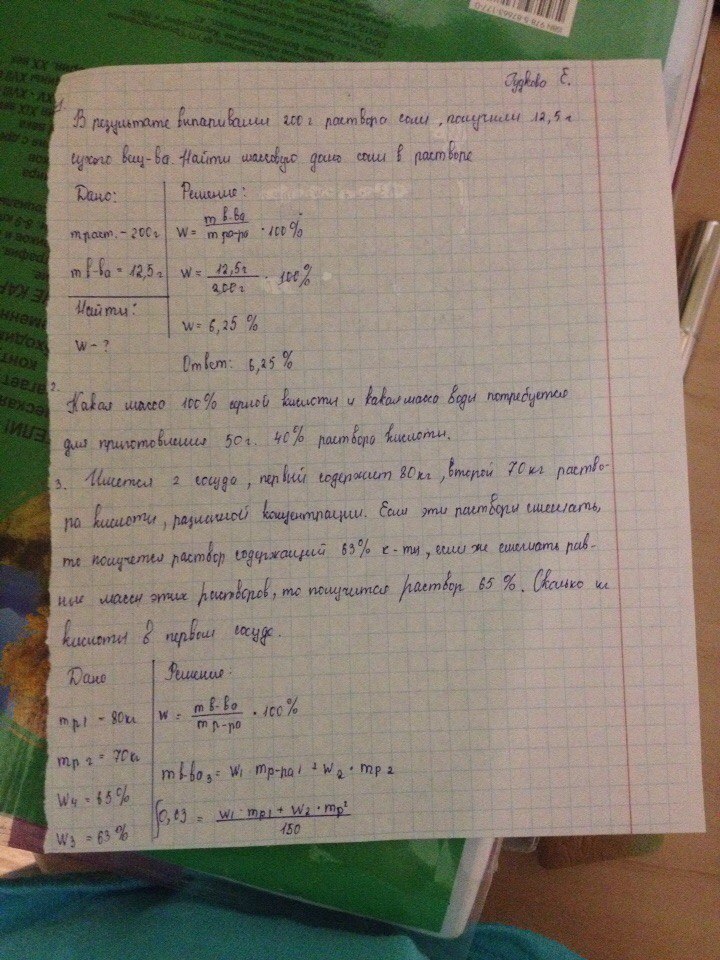 Гудково Е.
1.
В результате выпаривания 200 г раствора соли, получили 12,5 г
сухого вещ-ва. Найти массовую долю соли в растворе
Дано:
mраст. - 200 г
m в-ва = 12,5 г
Найти:
W - ?
Решение:
W = m в-ва / m р-ра · 100%
W = 12,5 г / 200 г · 100%
W = 6,25 %
Ответ: 6,25 %
2.
Какая масса 100% серной кислоты и какая масса воды потребуется
для приготовления 50 г. 40% раствора кислоты.
3. Имеется 2 сосуда, первый содержит 80 кг, второй 70 кг раство-
ра кислоты, различной концентрации. Если эти растворы смешать,
то получется раствор содержащий 63% к-ты, если же смешать рав-
ные массы этих растворов, то получится раствор 65 %. Сколько кг
кислоты в первом сосуде.
Дано
mр1 - 80 кг
mр 2 = 70 кг
W4 = 65 %
W3 = 63 %
Решение:
W = m в-ва / m р-ра · 100%
m в-ва3 = W1 · mр-ра1 + W2 · mр 2
{0,63 = W1 · mр1 + W2 · mр2 / 150
ISBN 978-5-87663-177-0